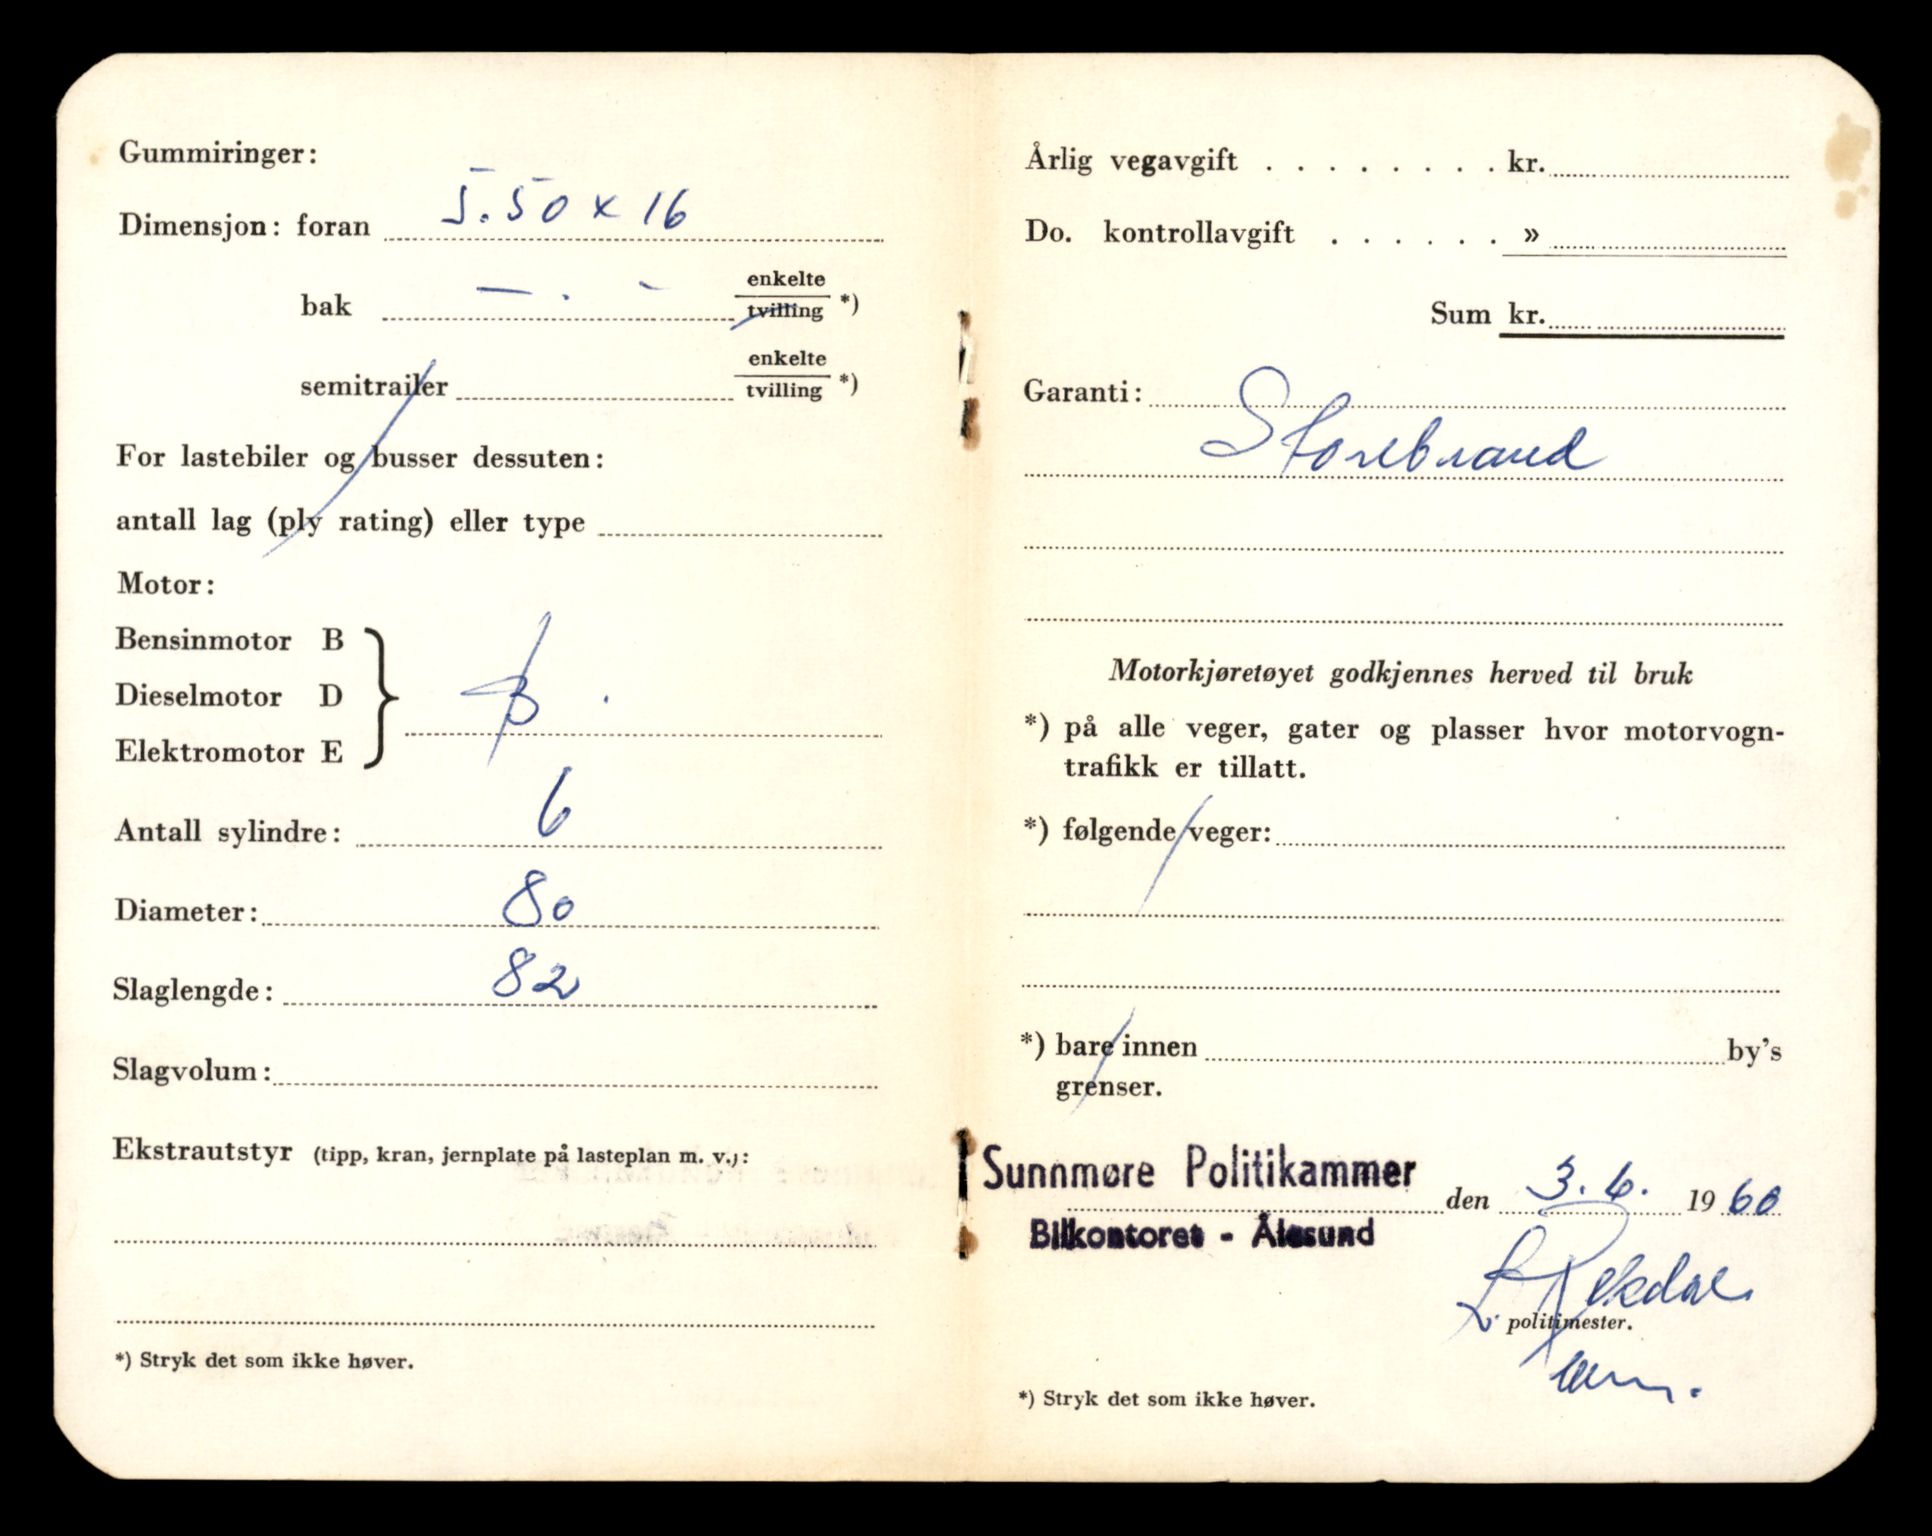 Gummiringer:
Dimensjon: foran 5.50 x 16
bak — . - enkelte
tvilling *)
semitrailer enkelte
tvilling *)
For lastebiler og busser dessuten:
antall lag (ply rating) eller type
Motor:
Bensinmotor B
Dieselmotor D B .
Elektromotor E
Antall sylindre: 6
Diameter: 80
Slaglengde: 82
Slagvolum:
Ekstrautstyr (tipp, kran, jernplate på lasteplan m. v.):
*) Stryk det som ikke høver.
Årlig vegavgift . . . . . . . . kr.
Do. kontrollavgift . . . . . . »
Sum kr.
Garanti:
Storebrand
Motorkjøretøyet godkjennes herved til bruk
*) på alle veger, gater og plasser hvor motorvogn-
trafikk er tillatt.
*) følgende veger:
*) bare innen by's
grenser.
Sunnmøre Politikammer den 3.6. 1960
Bilkontoret - Ålesund
L. Rekdal
politimester.
*) Stryk det som ikke høver.